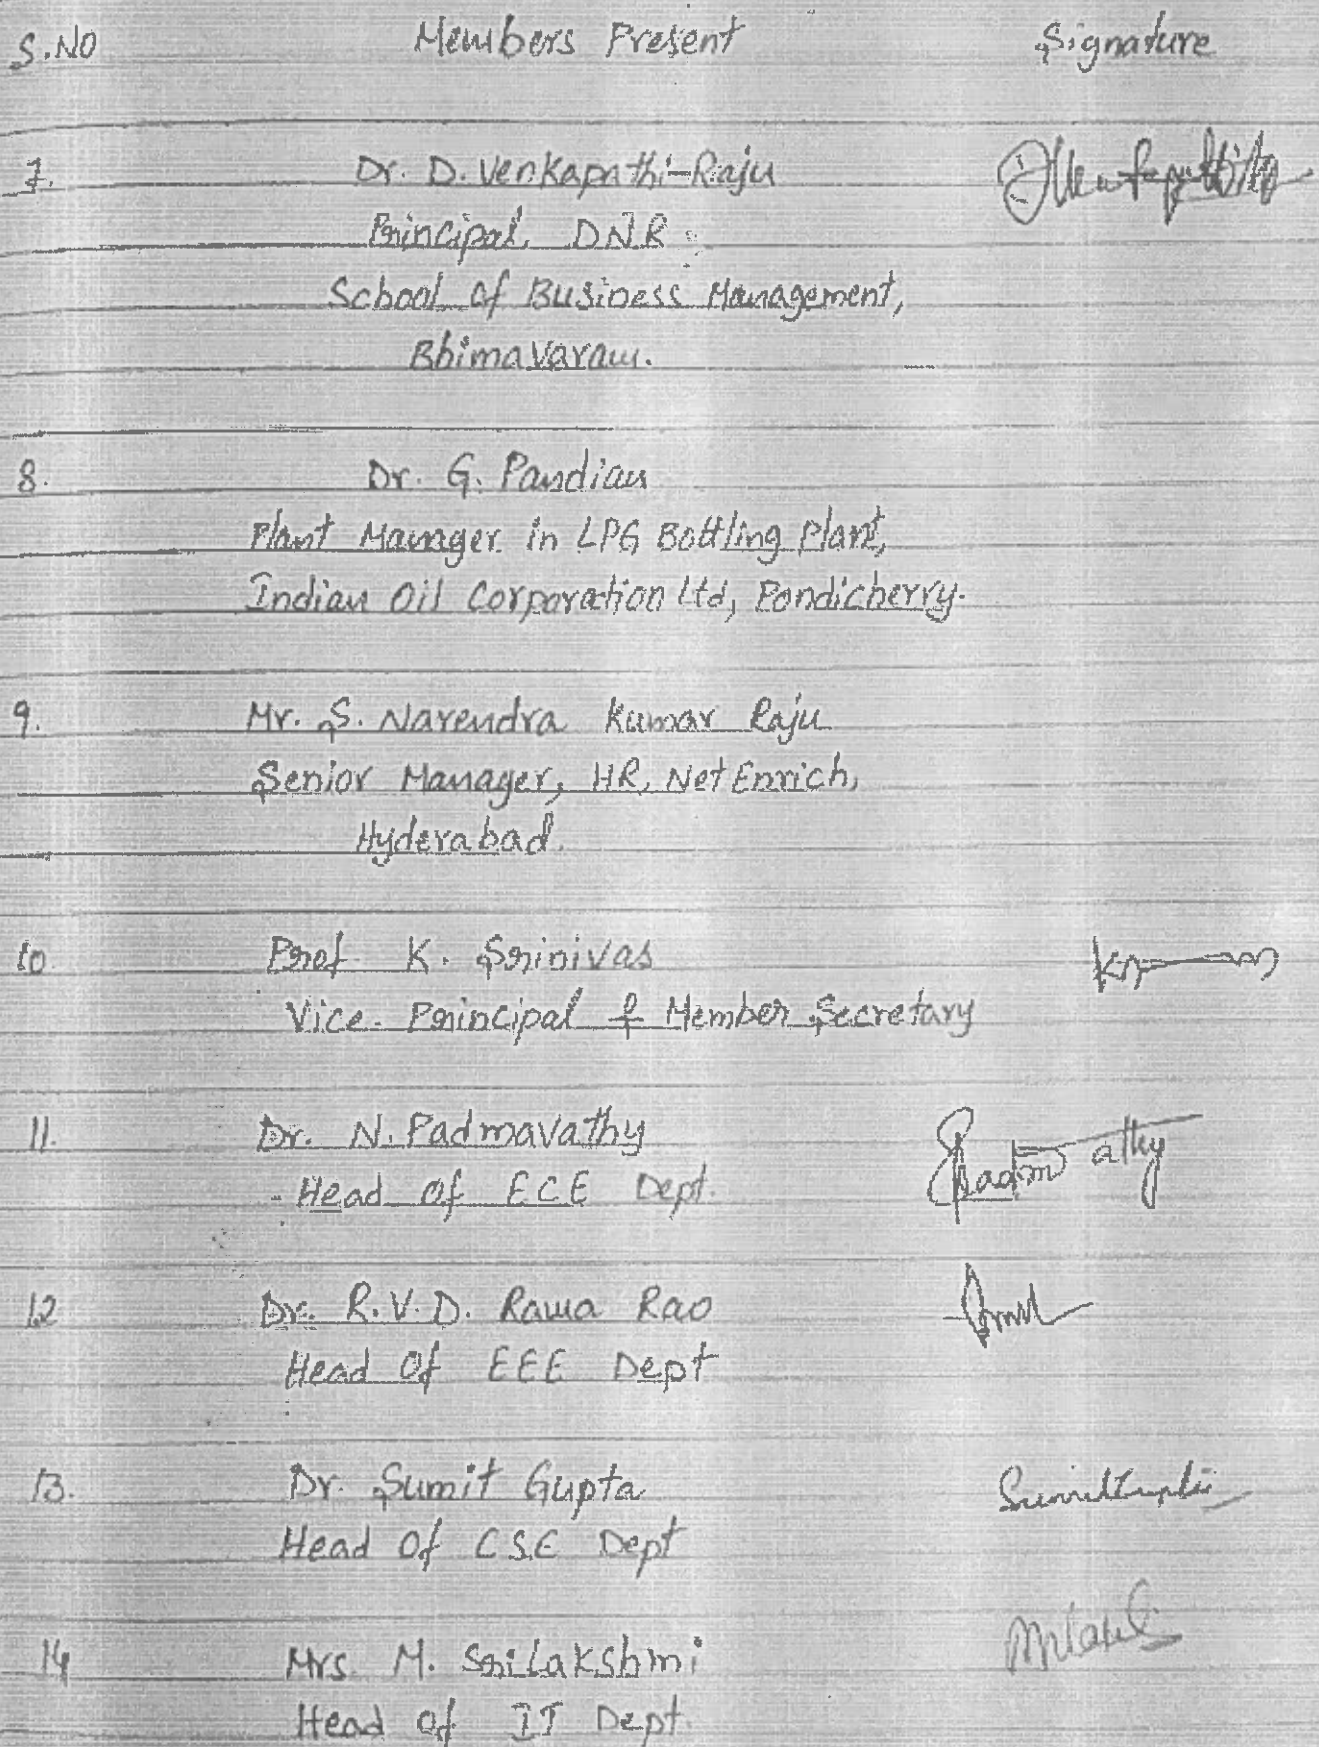 S.NO Members Present Signature
7. Dr. D. Venkapathi-Raju
Principal, DNR
School of Business Management,
Bhimavaram.
8. Dr. G. Pandian
Plant Manager in LPG Bottling Plant,
Indian Oil Corporation Ltd, Pondicherry.
9. Mr. S. Narendra Kumar Raju
Senior Manager, HR, NetEnrich,
Hyderabad.
10 Prof. K. Srinivas
Vice. Principal & Member Secretary
11. Dr. N. Padmavathy
Head Of ECE Dept.
12 Dr. R.V.D. Rama Rao
Head Of EEE Dept
13. Dr. Sumit Gupta Sumit Gupta
Head Of CSE Dept
14 Mrs. M. SriLakshmi
Head of IT Dept.